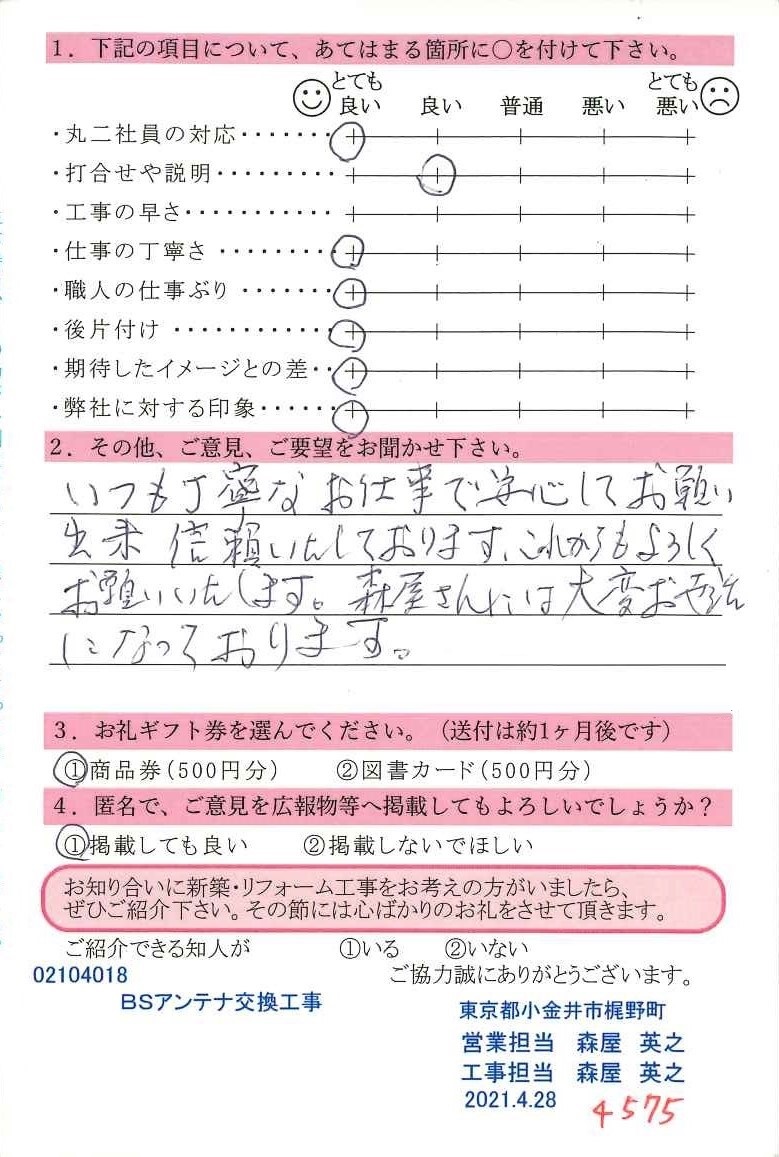 1．下記の項目について、あてはまる箇所に○を付けて下さい。
とても良い 良い 普通 悪い とても悪い
・丸二社員の対応・・・・・・・
・打合せや説明・・・・・・・・・
・工事の早さ・・・・・・・・・・・
・仕事の丁寧さ ・・・・・・・・
・職人の仕事ぶり ・・・・・・・
・後片付け ・・・・・・・・・・・・
・期待したイメージとの差・・
・弊社に対する印象・・・・・・
2．その他、ご意見、ご要望をお聞かせ下さい。
いつも丁寧なお仕事で安心してお願い
出来 信頼いたしております。これからもよろしく
お願いいたします。森屋さんには大変お世話
になっております。
3．お礼ギフト券を選んでください。（送付は約1ヶ月後です）
①商品券（500円分） ②図書カード（500円分）
4．匿名で、ご意見を広報物等へ掲載してもよろしいでしょうか？
①掲載しても良い ②掲載しないでほしい
お知り合いに新築・リフォーム工事をお考えの方がいましたら、
ぜひご紹介下さい。その節には心ばかりのお礼をさせて頂きます。
ご紹介できる知人が ①いる ②いない
02104018 ご協力誠にありがとうございます。
BSアンテナ交換工事
東京都小金井市梶野町
営業担当 森屋 英之
工事担当 森屋 英之
2021.4.28
4575